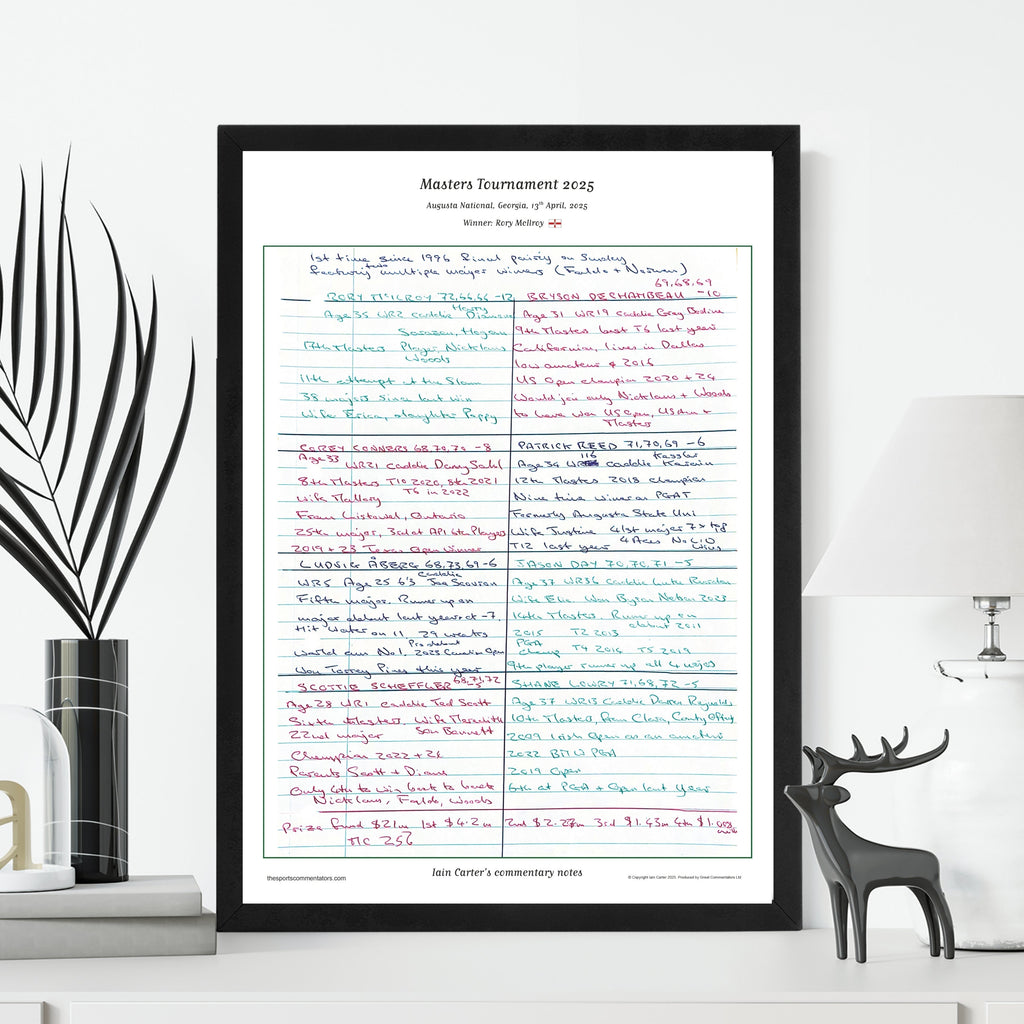 Masters Tournament 2025
Augusta National, Georgia, 13th April, 2025
Winner: Rory McIlroy
1st time since 1996 final pairing on Sunday
featuring two multiple major winners (Faldo + Norman)
RORY McILROY 72,66,66 -12
Age 35 WR2 Caddie Harry Diamond
Sarazen, Hogan
17th Masters Player, Nicklaus
Woods
11th attempt at the Slam
38 majors since last win
Wife Erica, daughter Poppy
69,68,69
BRYSON DECHAMBEAU -10
Age 31 WR19 Caddie Greg Bodine
9th Masters best T6 last year
Californian, lives in Dallas
low amateur 2016
US Open champion 2020 + 24
Would join only Nicklaus + Woods
to have won US Open, US Am +
Masters
COREY CONNERS 68,70,70 -8
Age 33 WR21 Caddie Danny Sahl
8th Masters T10 2020, 8th 2021
Wife Mallory T6 in 2022
From Listowel, Ontario
25th major, 3rd at API 6th Players
2019 + 23 Texas Open Winner
PATRICK REED 71,70,69 -6
Age 34 WR 116 Caddie Kessler Karain
12th Masters 2018 champion
Nine time winner on PGAT
Formerly Augusta State Uni
Wife Justine 41st major 7 x top 10
T12 last year 4 Aces No LIV Wins
LUDVIG ÅBERG 68,73,69 -6
WR5 Age 25 6'3 Caddie Joe Skovron
Fifth major. Runner up on
major debut last year at -7.
Hit Water on 11. 29 weeks
world am No 1. 2023
Won Torrey Pines this year
JASON DAY 70,70,71 -5
Age 37 WR36 Caddie Luke Reardon
Wife Ellie. Won Byron Nelson 2023
14th Masters. Runner up on
debut 2011
2015 T2 2013
PGA
Champ T4 2016 T5 2019
9th player runner up all 4 majors
SCOTTIE SCHEFFLER 68,71,72 -5
Age 28 WR1 Caddie Ted Scott
Sixth Masters, Wife Meredith
22nd major Son Bennett
Champion 2022 + 24
Parents Scott + Diane
Only 4th to win back to back
Nicklaus, Faldo, Woods
SHANE LOWRY 71,68,72 -5
Age 37 WR13 Caddie Darren Reynolds
10th Masters, from Clara, County Offaly
2009 Irish Open as an amateur
2022 BMW PGA
2019 Open
6th at PGA + Open last year
Prize fund $21m 1st $4.2m 2nd $2.27m 3rd $1.43m 4th $1.008
TIC 256
thesportscommentators.com
Iain Carter's commentary notes
© Copyright Iain Carter 2025. Produced by Great Commentators Ltd